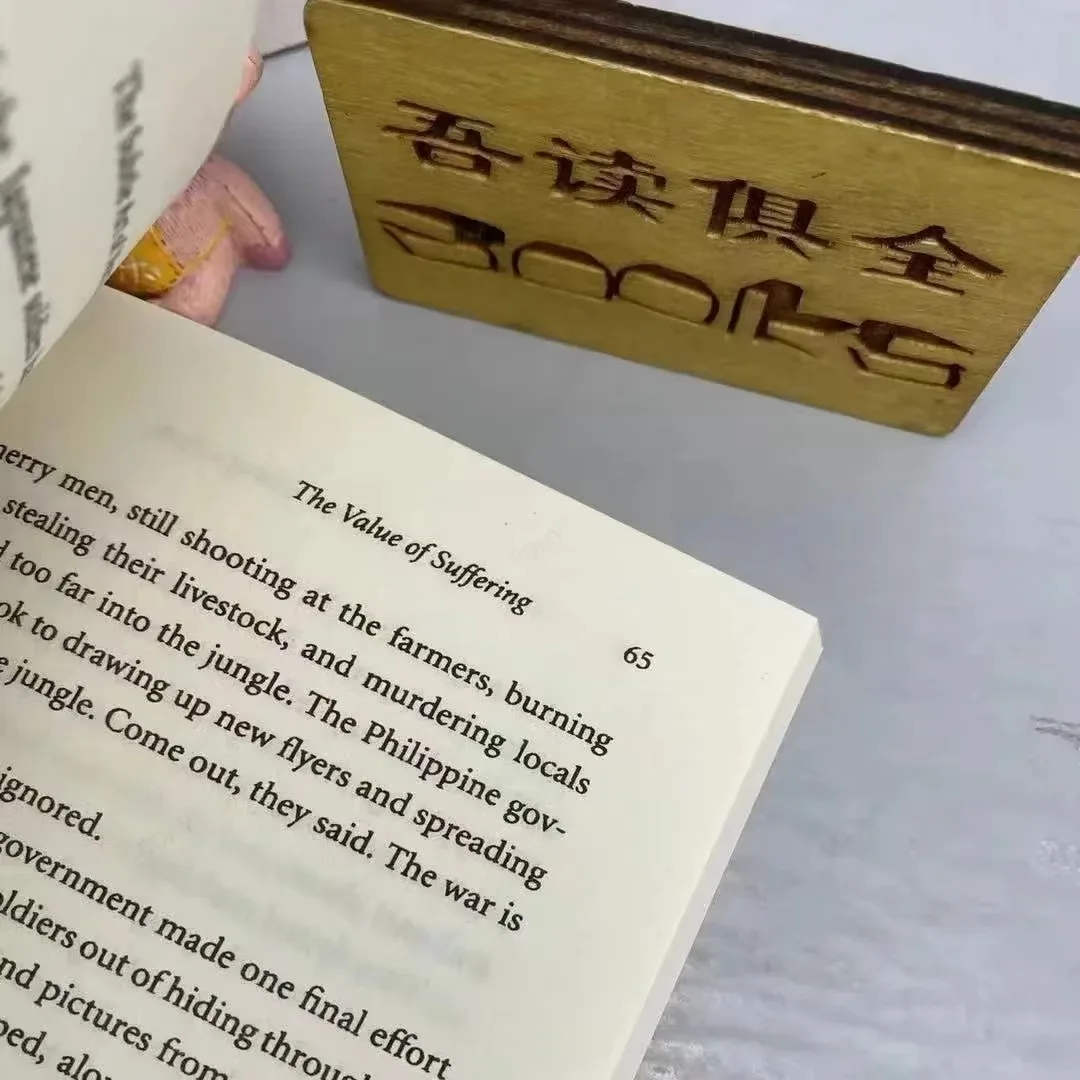 吾读俱全
BOOKS
The Value of Suffering
65
men, still shooting at the farmers, burning
stealing their livestock, and murdering locals
too far into the jungle. The Philippine gov-
to drawing up new flyers and spreading
jungle. Come out, they said. The war is
ignored.
government made one final effort
out of hiding
and pictures from